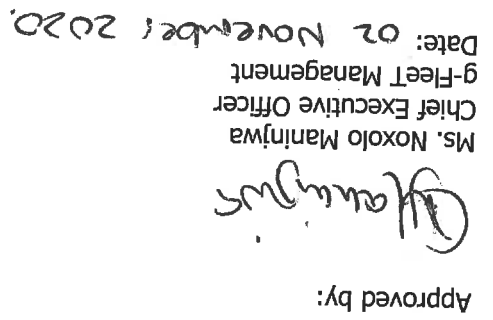 Approved by:
Ms. Noxolo Maninjwa
Chief Executive Officer
g-FleeT Management
Date: 02 November 2020.